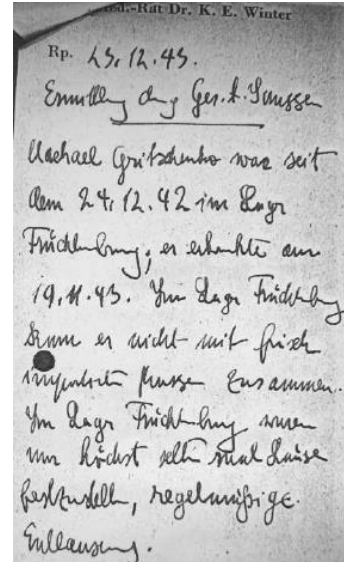 Med.-Rat Dr. K. E. Winter
Rp. 23.12.43.
Ermittlung durch Ges. A. Janssen
Michael Gritschenko war seit
dem 24.12.42 im Lager
Früchtenburg; er erkrankte am
19.11.43. Im Lager Früchtenburg
kam er nicht mit frisch
importierten Russen zusammen.
Im Lager Früchtenburg waren
nur höchst selten mal Läuse
festzustellen, regelmässige
Entlausung.